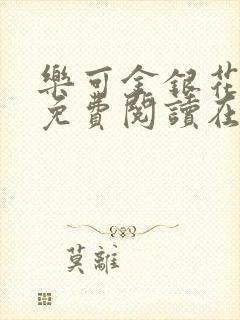 樂可金銀花
免費閱讀在
莫離